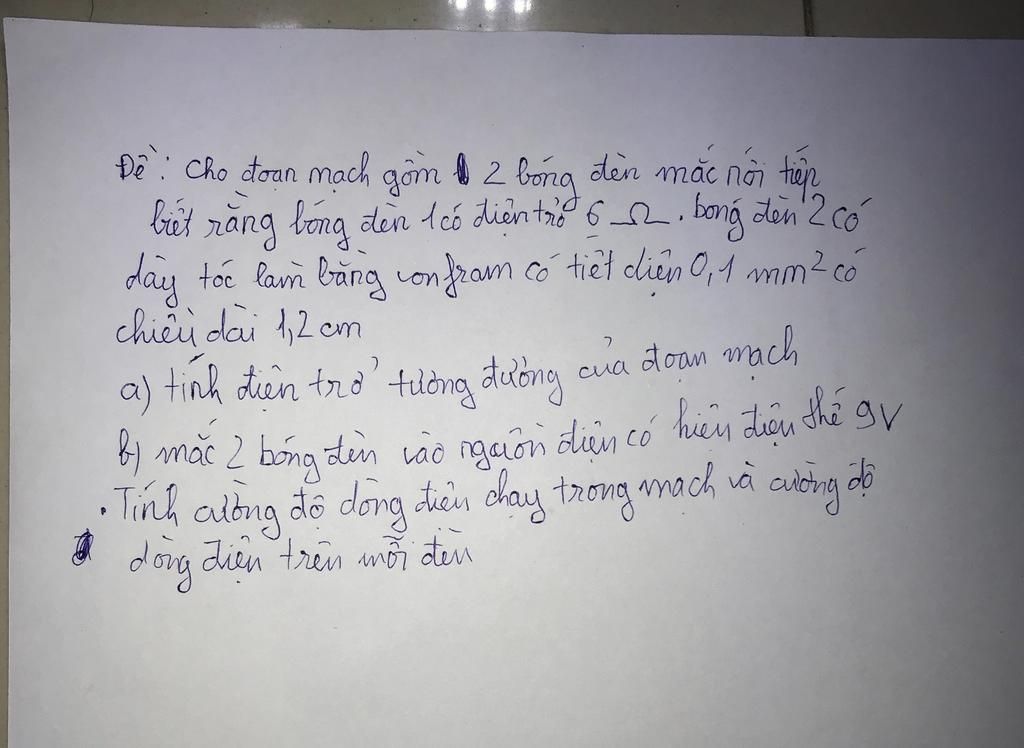 Đề: Cho đoạn mạch gồm 2 bóng đèn mắc nối tiếp
biết rằng bóng đèn 1 có điện trở 6 Ω. bóng đèn 2 có
dây tóc làm bằng vonfram có tiết diện 0,1 mm² có
chiều dài 1,2 cm
a) tính điện trở tương đương của đoạn mạch
b) mắc 2 bóng đèn vào nguồn điện có hiệu điện thế 9V
. Tính cường độ dòng điện chạy trong mạch và cường độ
dòng điện trên mỗi đèn